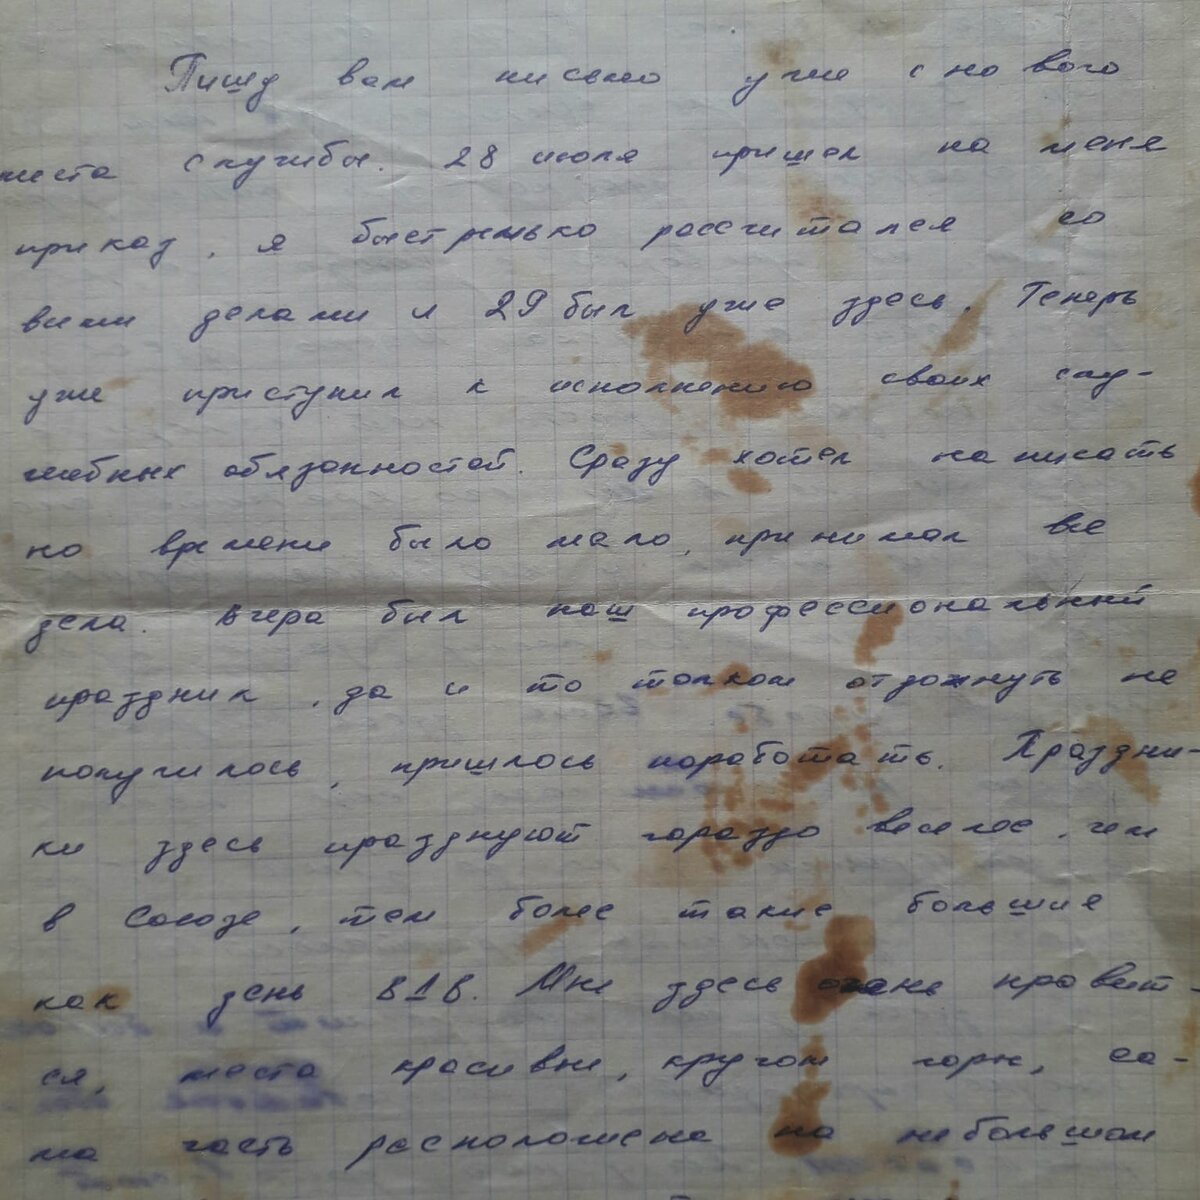 Пишу вам письмо уже с нового
места службы. 28 июля пришел на меня
приказ, я быстренько рассчитался со
всеми делами и 29 был уже здесь. Теперь
уже приступил к исполнению своих слу-
жебных обязанностей. Сразу хотел написать
но времени было мало, принимал все
дела. Вчера был наш профессиональный
праздник, да и то толком отдохнуть не
получилось, пришлось поработать. Праздни-
ки здесь празднуют гораздо веселее, чем
в Союзе, тем более такие большие
как день ВДВ. Мне здесь очень нравит-
ся, места красивые, кругом горы, са-
ма часть расположена на небольшом